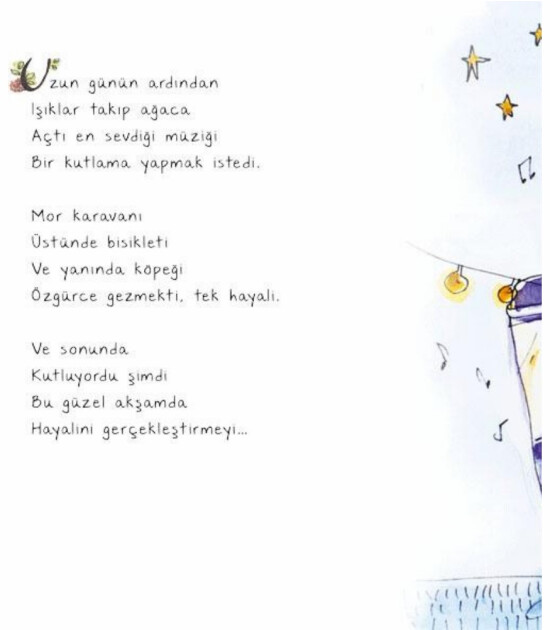 Uzun günün ardından
Işıklar takıp ağaca
Açtı en sevdiği müziği
Bir kutlama yapmak istedi.
Mor karavanı
Üstünde bisikleti
Ve yanında köpeği
Özgürce gezmekti, tek hayali.
Ve sonunda
Kutluyordu şimdi
Bu güzel akşamda
Hayalini gerçekleştirmeyi...